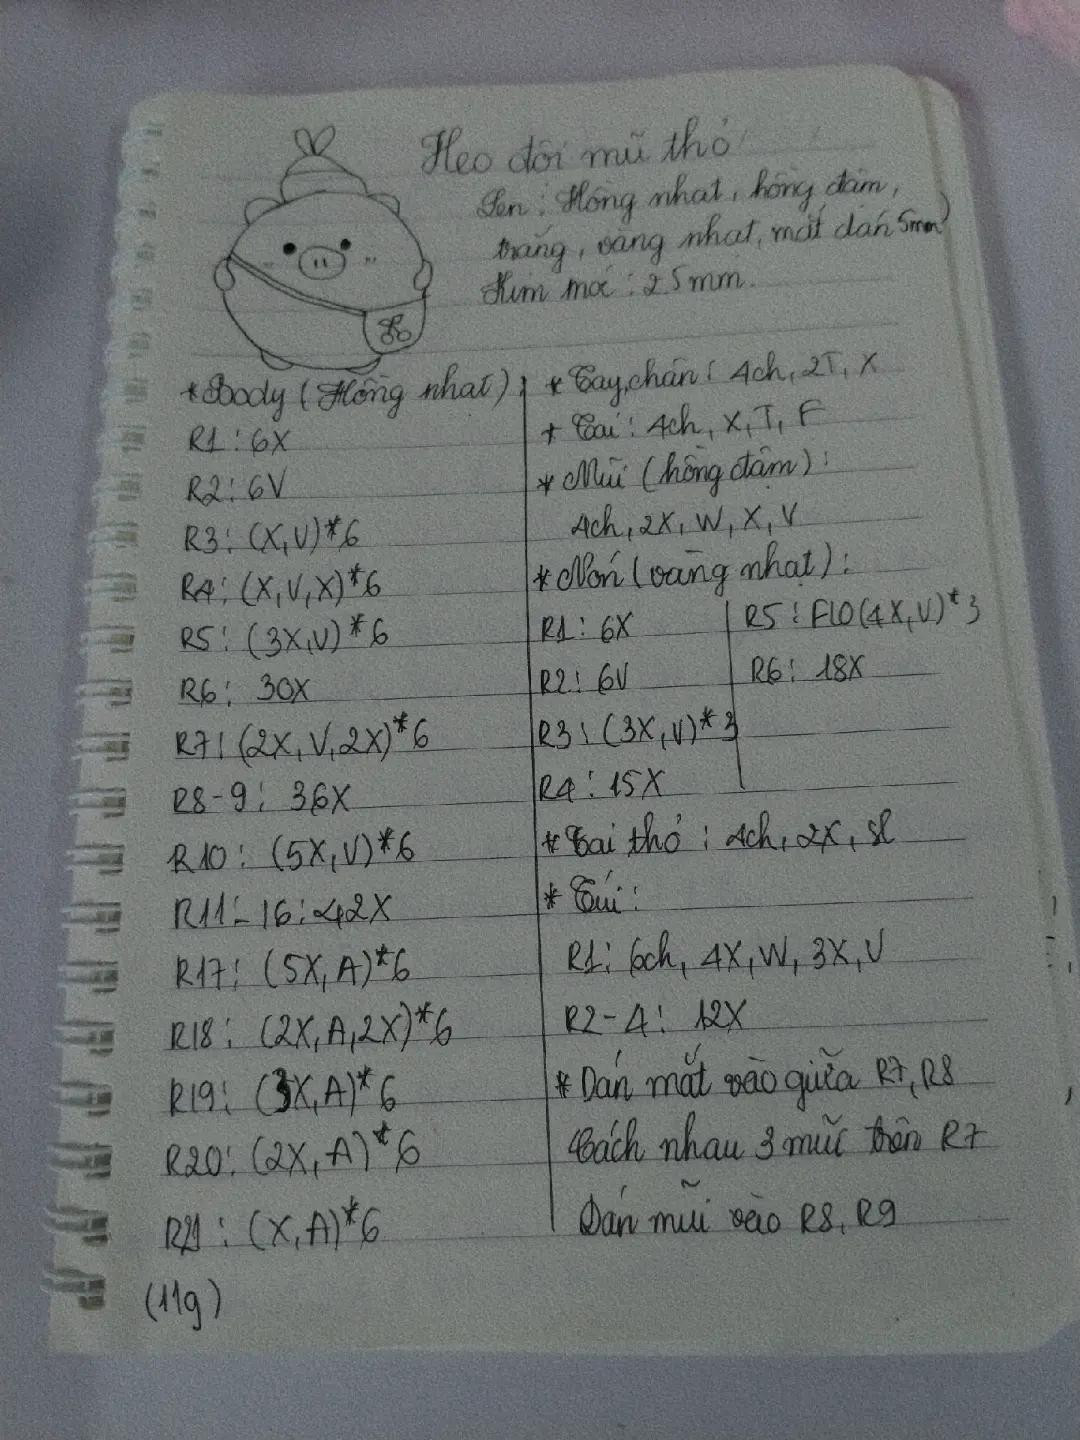 Heo đội mũ thỏ
Len : Hồng nhạt, hồng đậm,
trắng, vàng nhạt, mắt dán 5mm)
Kim móc : 2.5mm.
* Body (Hồng nhạt)
R1 : 6X
R2 : 6V
R3 : (X,V)*6
R4 : (X,V,X)*6
R5 : (3X,V)*6
R6 : 30X
R7 : (2X,V,2X)*6
R8-9 : 36X
R10 : (5X,V)*6
R11-16 : 42X
R17 : (5X,A)*6
R18 : (2X,A,2X)*6
R19 : (3X,A)*6
R20 : (2X,A)*6
R21 : (X,A)*6
(11g)
* Tay,chân : 4ch, 2T, X
* Tai : 4ch, X, T, F
* Mũi (hồng đậm) :
4ch, 2X, W, X, V
* Nón (vàng nhạt) :
R1 : 6X
R2 : 6V
R3 : (3X,V)*3
R4 : 15X
R5 : FLO(4X,V)*3
R6 : 18X
* Tai thỏ : 4ch, 2X, sl
* Túi :
R1 : 6ch, 4X, W, 3X, V
R2-4 : 12X
* Dán mắt vào giữa R7, R8
Cách nhau 3 mũi trên R7
Dán mũi vào R8, R9